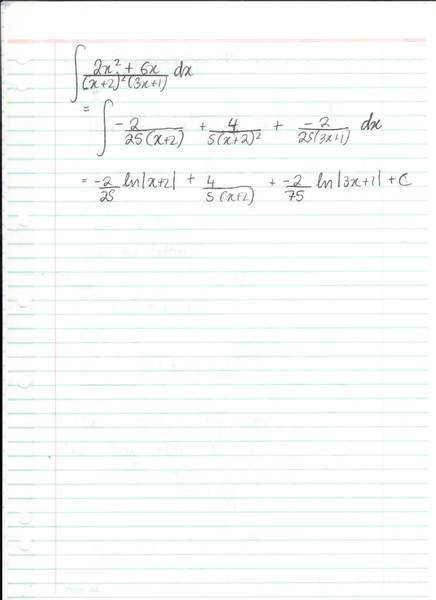 ∫ 2x² + 6x / (x+2)²(3x+1) dx
= ∫ -2 / 25(x+2) + 4 / 5(x+2)² + -2 / 25(3x+1) dx
= -2/25 ln|x+2| + 4 / 5(x+2) + -2/75 ln|3x+1| + C